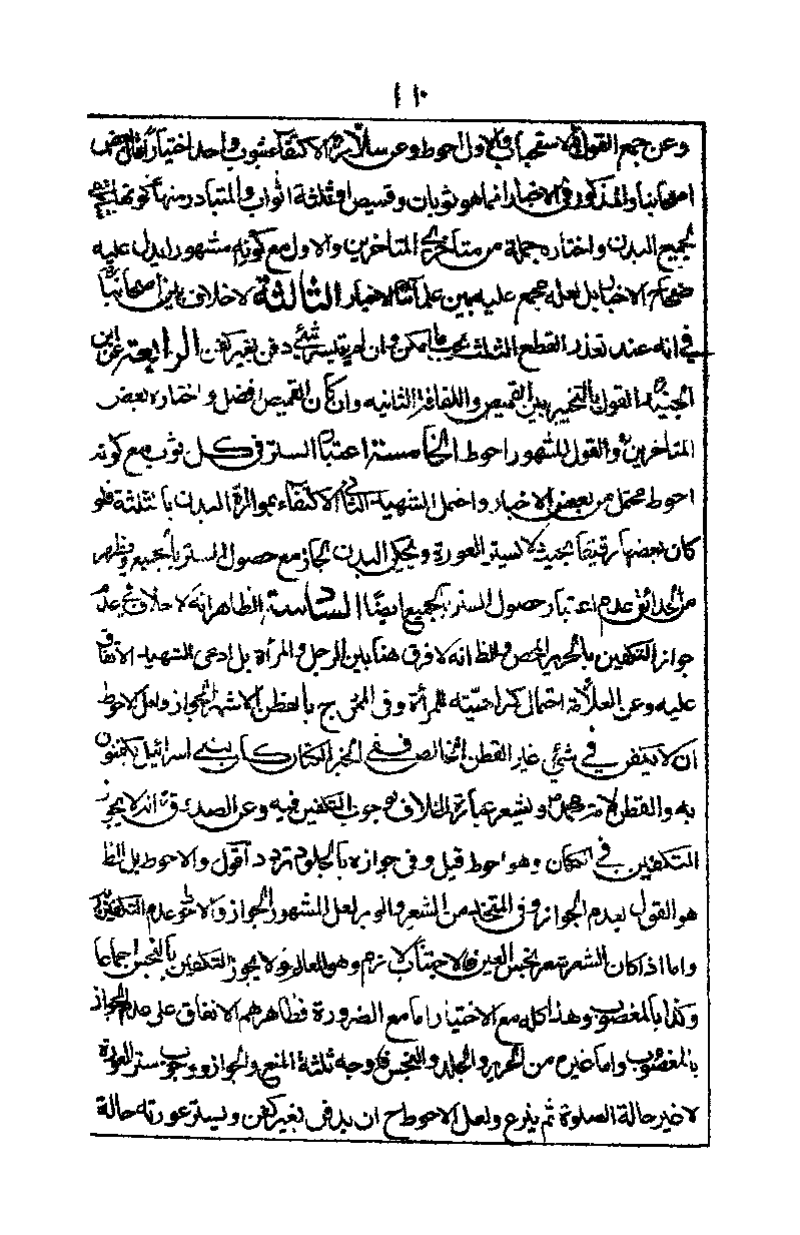 ٤١٠
وعن جمع القول بالاستحباب والاول احوط وعن سلار الاكتفاء بثوب واحد اختياراً لقول بعض
اصحابنا والمذكور في الاخبار انما هو ثوبان وقميص او ثلثة اثواب والمتبادر منها كونها
لجميع البدن واختاره جملة من متأخري المتاخرين والاول مع كونه مشهورا يدل عليه
الاخبار بل لعله مجمع عليه بين علمائنا الاخيار الثالثة لا خلاف بين اصحابنا
في انه عند تعذر القطع الثلث يجب ما امكن وان لم يتيسر شئ دفن بغير كفن الرابعة عن ابن
الجنيد القول بالتخيير بين القميص واللفافة الثانيه وان كان القميص افضل واختاره بعض
المتاخرين والقول المشهور احوط الخامسة اعتبار الستر في كل ثوب مع كونه
احوط محتمل من بعض الاخبار واحتمل الشهيد الثاني الاكتفاء بمواراة البدن بالثلثة فلو
كان بعضها رقيقا بحيث لا يستر العورة ويحكي البدن لجاز مع حصول الستر بالجميع ويظهر
من الحدائق عدم اعتبار حصول الستر بالجميع ايضا السادسة الظاهر انه لا خلاف في عدم
جواز التكفين بالحرير المحض والظ انه لا فرق هنا بين الرجل والمرأة بل ادعى الشهيد الاتفاق
عليه وعن العلامة احتمال كراهيته للمرأة وفي الممتزج بالقطن الاشهر الجواز ولعل الاحوط
ان لا يكفن في شئ غير القطن الخالص ففي الخبر الكتان كان بني اسرائيل يكفنون
به والقطن لامة محمد ويشعر عبارة الخلاف بوجوب التكفين فيه وعن الصدوق انه لا يجوز
التكفين في الكتان وهو احوط قيل وفي جوازه بالجلود تردد أقول والاحوط بل الظ
هو القول بعدم الجواز وفي المتخذ من الشعر والوبر لعل المشهور الجواز والاحوط عدم التكفين
واما اذا كان الشعر شعر نجس العين فالاجتناب لازم وهو العالم ولا يجوز التكفين بالنجس اجماعا
وكذا بالمغصوب وهذا كله مع الاختيار اما مع الضرورة فظاهرهم الاتفاق على عدم الجواز
بالمغصوب واما غيره من الحرير والجلد والنجس فاوجه ثلثة المنع والجواز ووجوب ستر العورة
لا غير حالة الصلوة ثم ينزع ولعل الاحوط ح ان يدفن بغير كفن ويستر عورته حالة